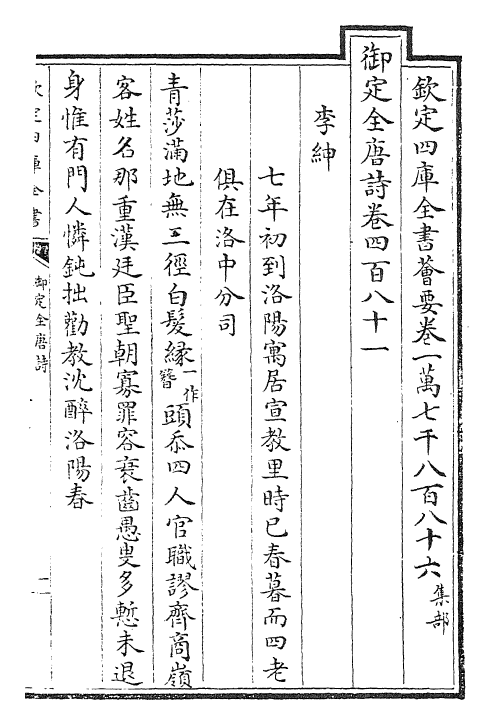 欽定四庫全書薈要卷一萬七千八百八十六 集部
御定全唐詩卷四百八十一
李紳
七年初到洛陽寓居宣教里時已春暮而四老
俱在洛中分司
青莎滿地無三徑白髮緣一作簪頭忝四人官職謬齊商嶺
客姓名那重漢廷臣聖朝寡罪容衰齒愚叟多慙未退
身惟有門人憐鈍拙勸教沈醉洛陽春
欽定四庫全書
御定全唐詩